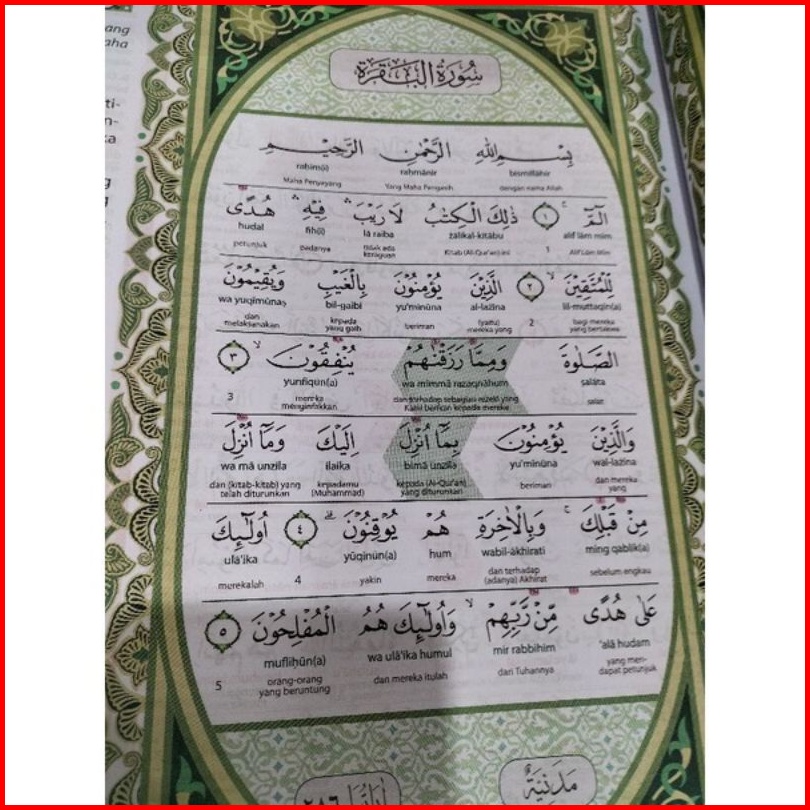 ang
aha
ti-
n-
ca
g
g
سُورَةُ الْبَقَرَةِ
بِسْمِ اللّٰهِ الرَّحْمٰنِ الرَّحِيْمِ
bismillāhir raḥmānir raḥīm(i)
dengan nama Allah Yang Maha Pengasih Maha Penyayang
الۤمّۤ ۚ ١ ذٰلِكَ الْكِتٰبُ لَا رَيْبَ ۛ فِيْهِ ۛ هُدًى
alif lām mīm 1 żālikal-kitābu lā raiba fīh(i) hudal
Alif Lām Mīm Kitab (Al-Qur'an) ini tidak ada keraguan padanya petunjuk
لِّلْمُتَّقِيْنَ ۙ ٢ الَّذِيْنَ يُؤْمِنُوْنَ بِالْغَيْبِ وَيُقِيْمُوْنَ
lil-muttaqīn(a) 2 al-lażīna yu'minūna bil-gaibi wa yuqīmūnaṣ
bagi mereka yang bertakwa (yaitu) mereka yang beriman kepada yang gaib dan melaksanakan
الصَّلٰوةَ وَمِمَّا رَزَقْنٰهُمْ يُنْفِقُوْنَ ۙ ٣
ṣalāta wa mimmā razaqnāhum yunfiqūn(a) 3
salat dan terhadap sebagian rezeki yang Kami berikan kepada mereka mereka menginfakkan
وَالَّذِيْنَ يُؤْمِنُوْنَ بِمَآ اُنْزِلَ اِلَيْكَ وَمَآ اُنْزِلَ
wal-lażīna yu'minūna bimā unzila ilaika wa mā unzila
dan mereka yang beriman kepada (Al-Qur'an) yang diturunkan kepadamu (Muhammad) dan (kitab-kitab) yang telah diturunkan
مِنْ قَبْلِكَ ۚ وَبِالْاٰخِرَةِ هُمْ يُوْقِنُوْنَ ۗ ٤ اُولٰۤىِٕكَ
ming qablik(a) wabil-ākhirati hum yūqinūn(a) 4 ulā'ika
sebelum engkau dan terhadap (adanya) Akhirat mereka yakin merekalah
عَلٰى هُدًى مِّنْ رَّبِّهِمْ ۙ وَاُولٰۤىِٕكَ هُمُ الْمُفْلِحُوْنَ ٥
'alā hudam mir rabbihim wa ulā'ika humul mufliḥūn(a) 5
yang mendapat petunjuk dari Tuhannya dan mereka itulah orang-orang yang beruntung
مَدَنِيَّةٌ اٰيَاتُهَا ٢٨٦